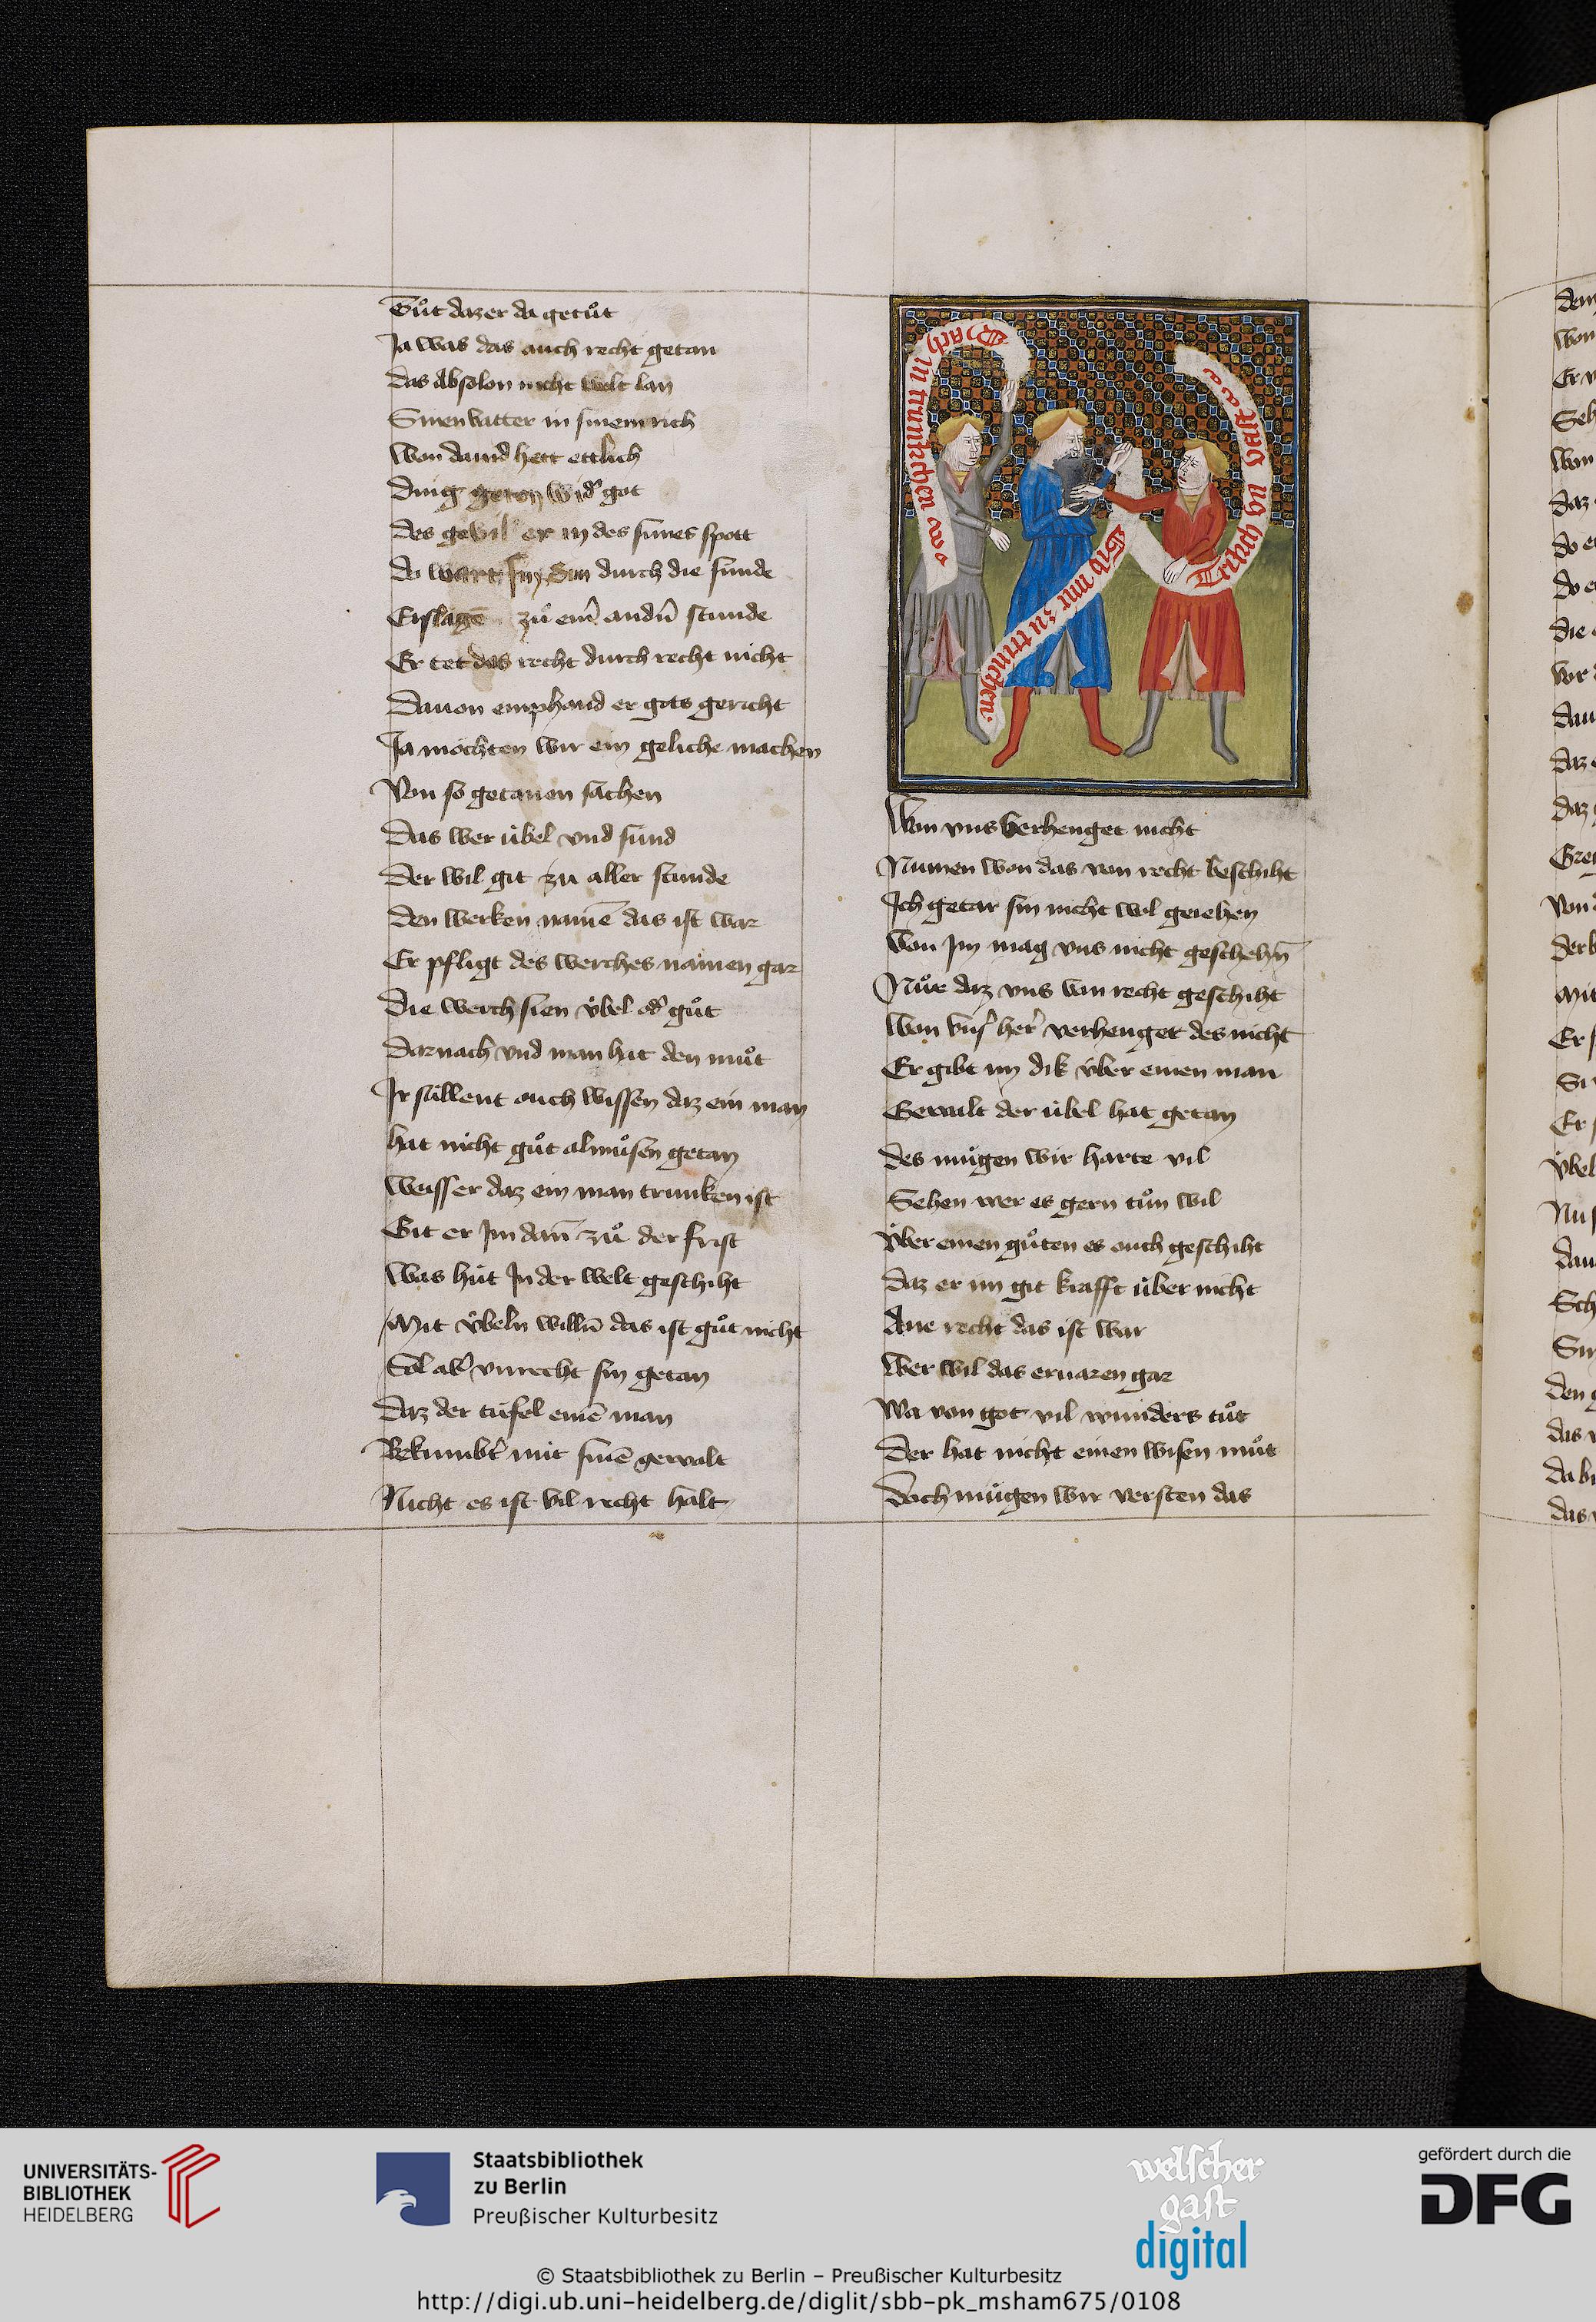 Tuͦt daz er da getuͦt
Ja was das auch recht getan
Das Absolon nicht wolt lan
Sinen vatter in sinem rich
Won dauid hett ettlich
Ding getan wid' got
Des geviel er in des sunes spott
Do wart sin Sun durch die sunde
Erslagē zuͦ eīm andn̄ stunde
Er tet das recht durch recht nicht
Dauon emphand er gots gericht
Ja mochten wir ein geliche machen
Von so getanen sachen
Das wer übel vnd sünd
Der wil git zu aller stunde
Den werken namē das ist war
Er pfligt des werches namen gar
Die werch sien übel od' guͦt
Darnach vnd man hat den muͦt
Ir süllent ouch wissen daz ein man
hat nicht guͦt almuͦsen getan
Weisser daz ein man trunken ist
Git er Im dan̄ zuͦ der frist
Was hüt In der welt geschiht
Mit übeln willn̄ das ist guͦt nicht
Sol ab' vnrecht sin getan
Daz der tüfel einē man
Bekumbt' mit sinē gewalt
Nicht es ist vil recht halt
Mach in trunchen
Gib mir zu trinchen
Trinch vn
Won vns verhenget nicht
Numen won das von recht beschiht
Ich getar sin nicht wol geiehen
Von Im mag vns nicht geschehn̄
Nuͦr daz vns von recht geschiht
Won vns' her' verhenget des nicht
Er gibt im dik über einen man
Gewalt der übel hat getan
Des mügen wir harte vil
Sehen wer es gern tuͦn wil
Über einen guͦten es ouch geschiht
Daz er im git krafft über nicht
Ane recht das ist war
Wer wil das eruaren gar
Wa von got vil wunders tuͦt
Der hat nicht einen wisen muͦt
Doch mügen wir versten das
UNIVERSITÄTS-
BIBLIOTHEK
HEIDELBERG
Staatsbibliothek
zu Berlin
Preußischer Kulturbesitz
welscher
gast
digital
gefördert durch die
DFG
© Staatsbibliothek zu Berlin – Preußischer Kulturbesitz
http://digi.ub.uni-heidelberg.de/diglit/sbb-pk_msham675/0108